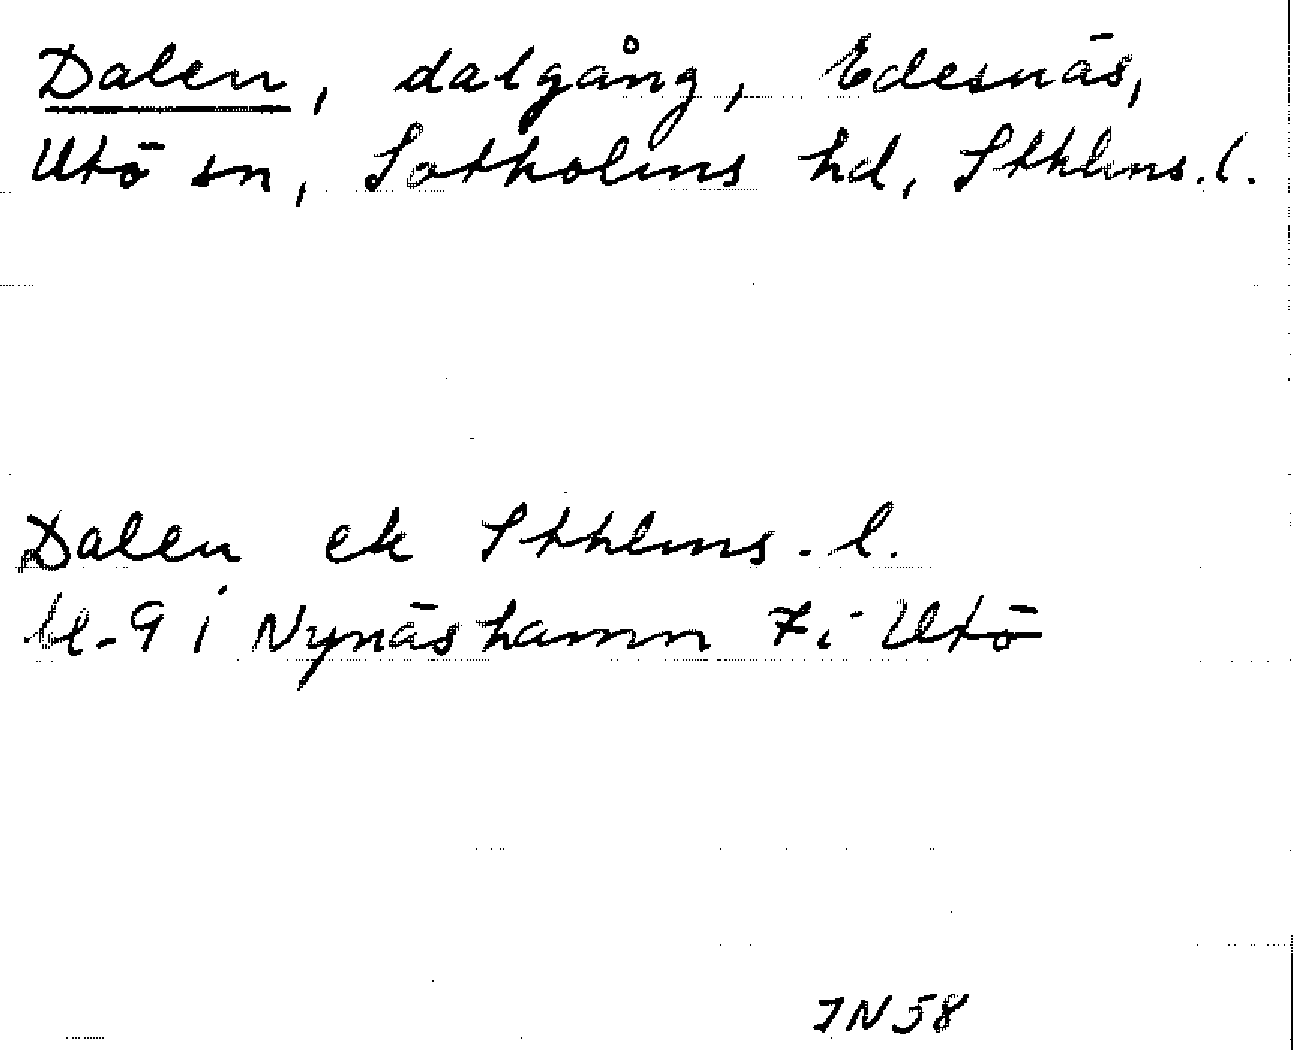 Dalen, dalgång, Edesnäs,
Utö sn, Sotholms hd, Sthlms. l.
Dalen ek Sthlms. l.
bl. 9 i Nynäshamn 7 i Utö
JN 58